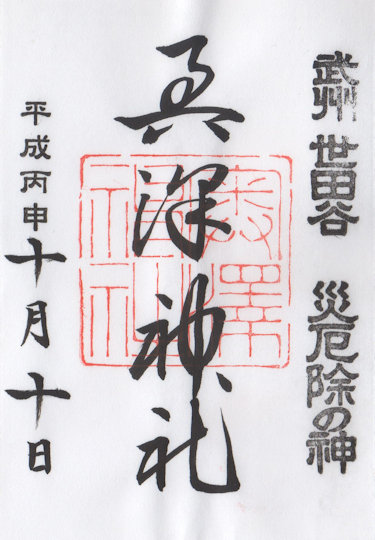 武州 世田谷 災厄除の神
奥澤神社
奥澤神社
平成丙申十月十日